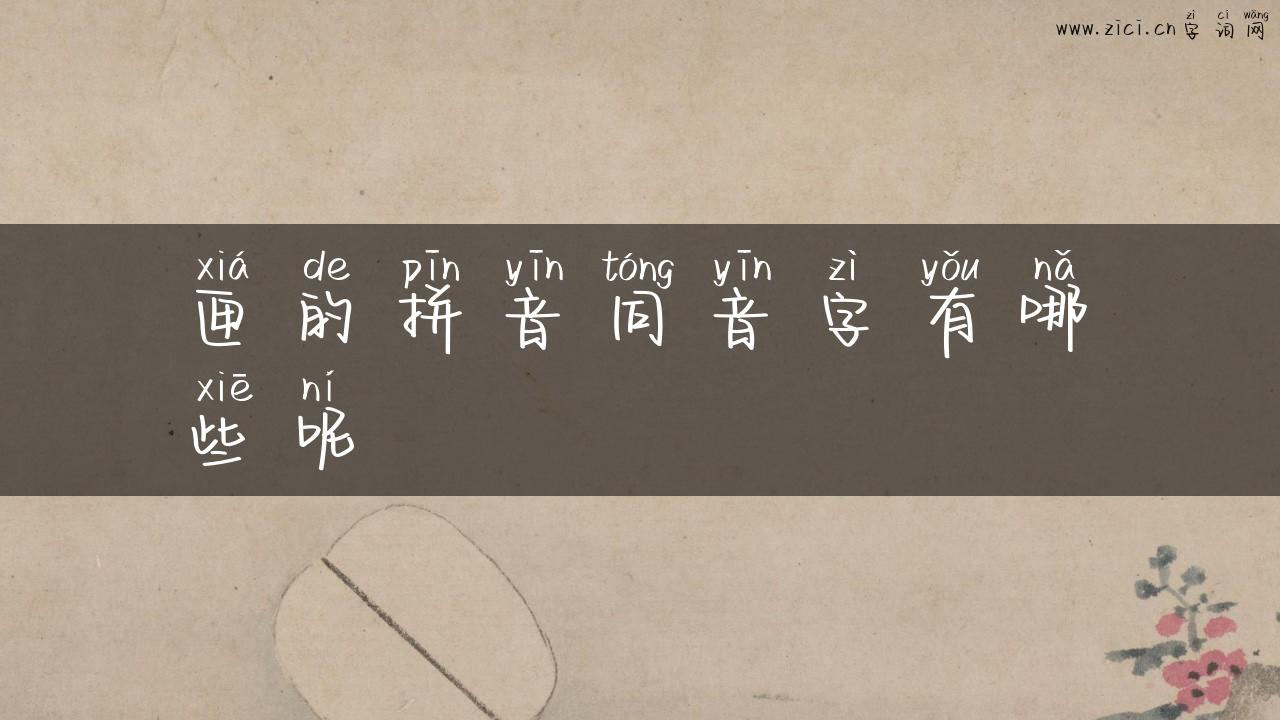 zì cí wǎng
www.zīcī.cn 字 词 网
xiá de pīn yīn tóng yīn zì yǒu nǎ
匣 的 拼 音 同 音 字 有 哪
xiē ní
些 呢